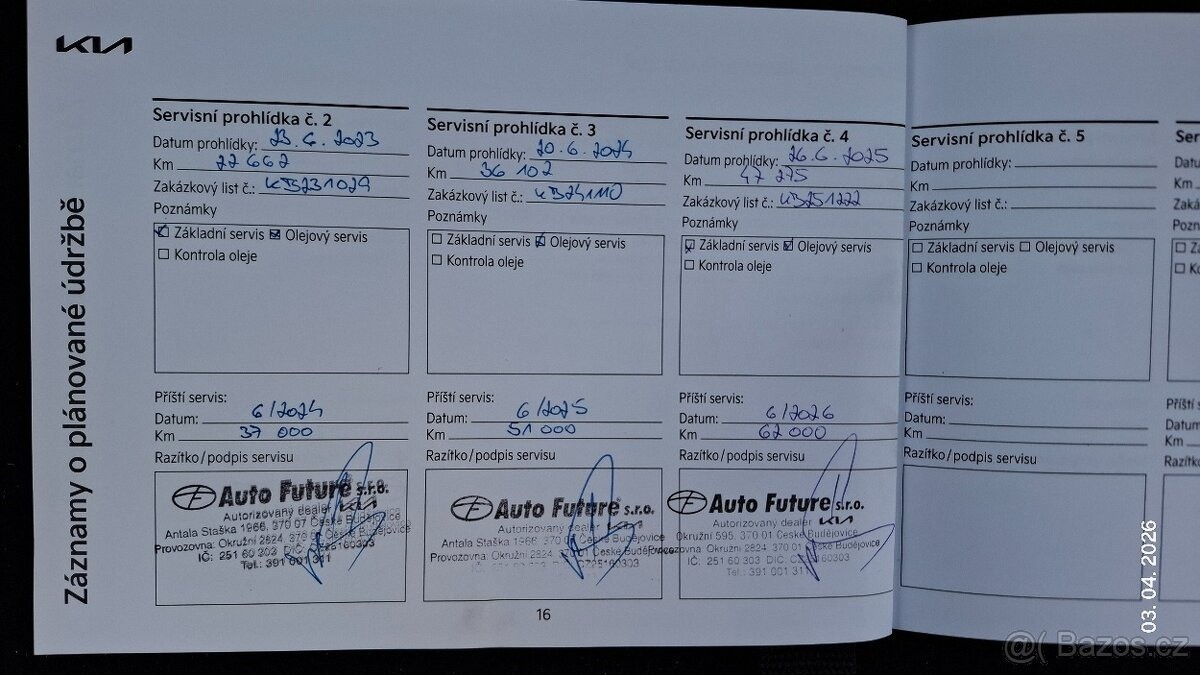 KIA
Záznamy o plánované údržbě
Servisní prohlídka č. 2
Datum prohlídky: 23.6.2023
Km 22 662
Zakázkový list č.: KB231029
Poznámky
Základní servis Olejový servis
Kontrola oleje
Příští servis:
Datum: 6/2024
Km 37 000
Razítko/podpis servisu
Auto Future s.r.o.
Autorizovaný dealer KIA
Antala Staška 1966, 370 07 České Budějovice
Provozovna: Okružní 2824, 370 01 České Budějovice
IČ: 251 60 303 DIČ: CZ25160303
Tel.: 391 001 311
Servisní prohlídka č. 3
Datum prohlídky: 20.6.2024
Km 36 102
Zakázkový list č.: KB241110
Poznámky
Základní servis Olejový servis
Kontrola oleje
Příští servis:
Datum: 6/2025
Km 51 000
Razítko/podpis servisu
Auto Future s.r.o.
Autorizovaný dealer KIA
Antala Staška 1966, 370 07 České Budějovice
Provozovna: Okružní 2824, 370 01 České Budějovice
IČ: 251 60 303 DIČ: CZ25160303
16
Servisní prohlídka č. 4
Datum prohlídky: 26.6.2025
Km 47 275
Zakázkový list č.: KB251222
Poznámky
Základní servis Olejový servis
Kontrola oleje
Příští servis:
Datum: 6/2026
Km 62 000
Razítko/podpis servisu
Auto Future s.r.o.
Autorizovaný dealer KIA
Okružní 595, 370 01 České Budějovice
Provozovna: Okružní 2824, 370 01 České Budějovice
IČ: 251 60 303 DIČ: CZ25160303
Tel.: 391 001 311
Servisní prohlídka č. 5
Datum prohlídky:
Km
Zakázkový list č.:
Poznámky
Základní servis Olejový servis
Kontrola oleje
Příští servis:
Datum:
Km
Razítko/podpis servisu
Ser
Datu
Km
Zaká
Pozn
Příští s
Datum
Km
Razítk
03.04.2026
@( Bazos.cz